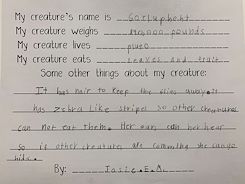 My creature's name is Gorluphent
My creature weighs 10,000 pounds
My creature lives pluto
My creature eats leaves and fruit
Some other things about my creature:
It has hair to keep the flies away. It
has zebra like stripes so other creatures
can not eat them. Her ears can her hear
so if other creatures are comming she can go
hide.
By: Josie.E.M.